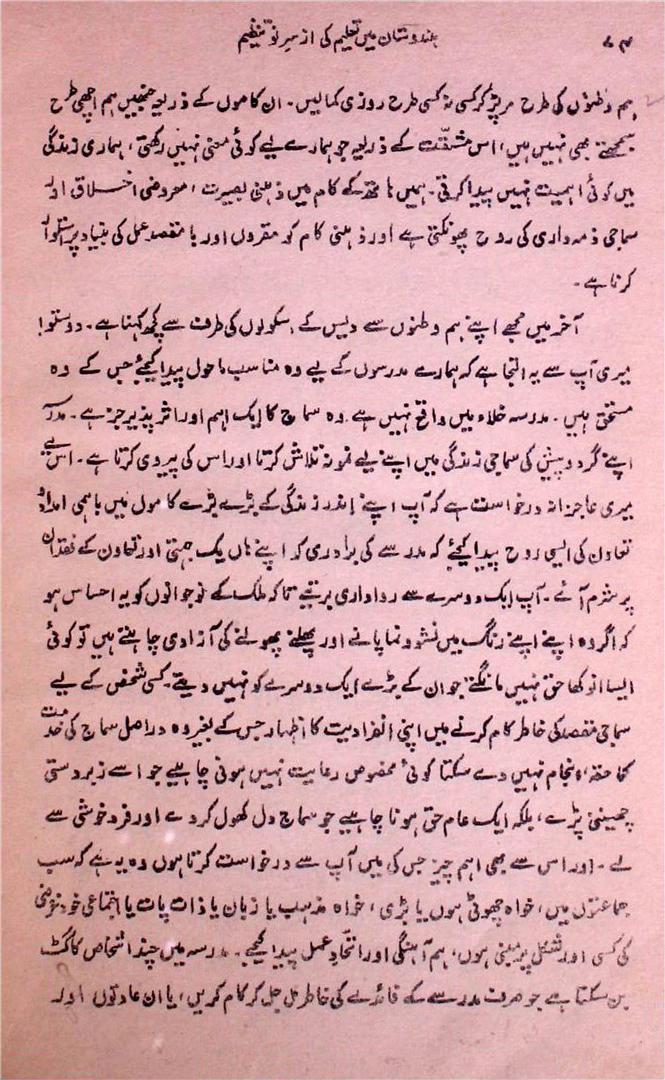 ۷۴ ہندوستان میں تعلیم کی از سرِ نو تنظیم
ہم وطنوں کی طرح مر پڑ کر کسی نہ کسی طرح روزی کما لیں۔ ان کاموں کے ذریعہ جنھیں ہم اچھی طرح
سمجھتے بھی نہیں ہیں، اس مشقّت کے ذریعہ جو ہمارے لیے کوئی معنی نہیں رکھتی، ہماری زندگی
میں کوئی اہمیت نہیں پیدا کرتی۔ ہمیں ہاتھ کے کام میں ذہنی بصیرت، معروضی اخلاق اور
سماجی ذمہ داری کی روح پھونکتی ہے اور ذہنی کام کو مقرون اور با مقصد عمل کی بنیاد پر استوار
کرنا ہے۔
آخر میں مجھے اپنے ہم وطنوں سے دیس کے اسکولوں کی طرف سے کچھ کہنا ہے۔ دوستو!
میری آپ سے یہ التجا ہے کہ ہمارے مدرسوں کے لیے وہ مناسب ماحول پیدا کیجئے جس کے وہ
مستحق ہیں۔ مدرسہ خلاء میں واقع نہیں ہے وہ سماج کا ایک اہم اور اثر پذیر جز ہے۔ مدرسہ
اپنے گرد و پیش کی سماجی زندگی میں اپنے لیے نمونہ تلاش کرتا اور اس کی پیروی کرتا ہے۔ اس لیے
میری عاجزانہ درخواست ہے کہ آپ اپنے اندر زندگی کے بڑے بڑے کاموں میں باہمی امداد و
تعاون کی ایسی روح پیدا کیجئے کہ مدرسے کی برادری کو اپنے ہاں یک جہتی اور تعاون کے فقدان
پر شرم آئے۔ آپ ایک دوسرے سے رواداری برتیے تاکہ ملک کے نوجوانوں کو یہ احساس ہو
کہ اگر وہ اپنے اپنے رنگ میں نشو و نما پانے اور پھلنے پھولنے کی آزادی چاہتے ہیں تو کوئی
ایسا انوکھا حق نہیں مانگتے جو ان کے بڑے ایک دوسرے کو نہیں دیتے۔ کسی شخص کے لیے
سماجی مقصد کی خاطر کام کرنے میں اپنی انفرادیت کا اظہار جس کے بغیر وہ دراصل سماج کی خدمت
کما حقہٗ، انجام نہیں دے سکتا کوئی مخصوص رعایت نہیں ہونی چاہیے جو اسے زبردستی
چھیننی پڑے، بلکہ ایک عام حق ہونا چاہیے جو سماج دل کھول کر دے اور فرد خوشی سے
لے۔ اور اس سے بھی اہم چیز جس کی میں آپ سے درخواست کرتا ہوں وہ یہ ہے کہ سب
جماعتوں میں، خواہ چھوٹی ہوں یا بڑی، خواہ مذہب یا زبان یا ذات پات یا اجتماعی خود غرضی
کی کسی اور شکل پر مبنی ہوں، ہم آہنگی اور اتّحادِ عمل پیدا کیجیے۔ مدرسہ میں چند اشخاص کا گٹ
بن سکتا ہے جو صرف مدرسے کے فائدے کی خاطر مل جل کر کام کریں، یا ان عادتوں اور